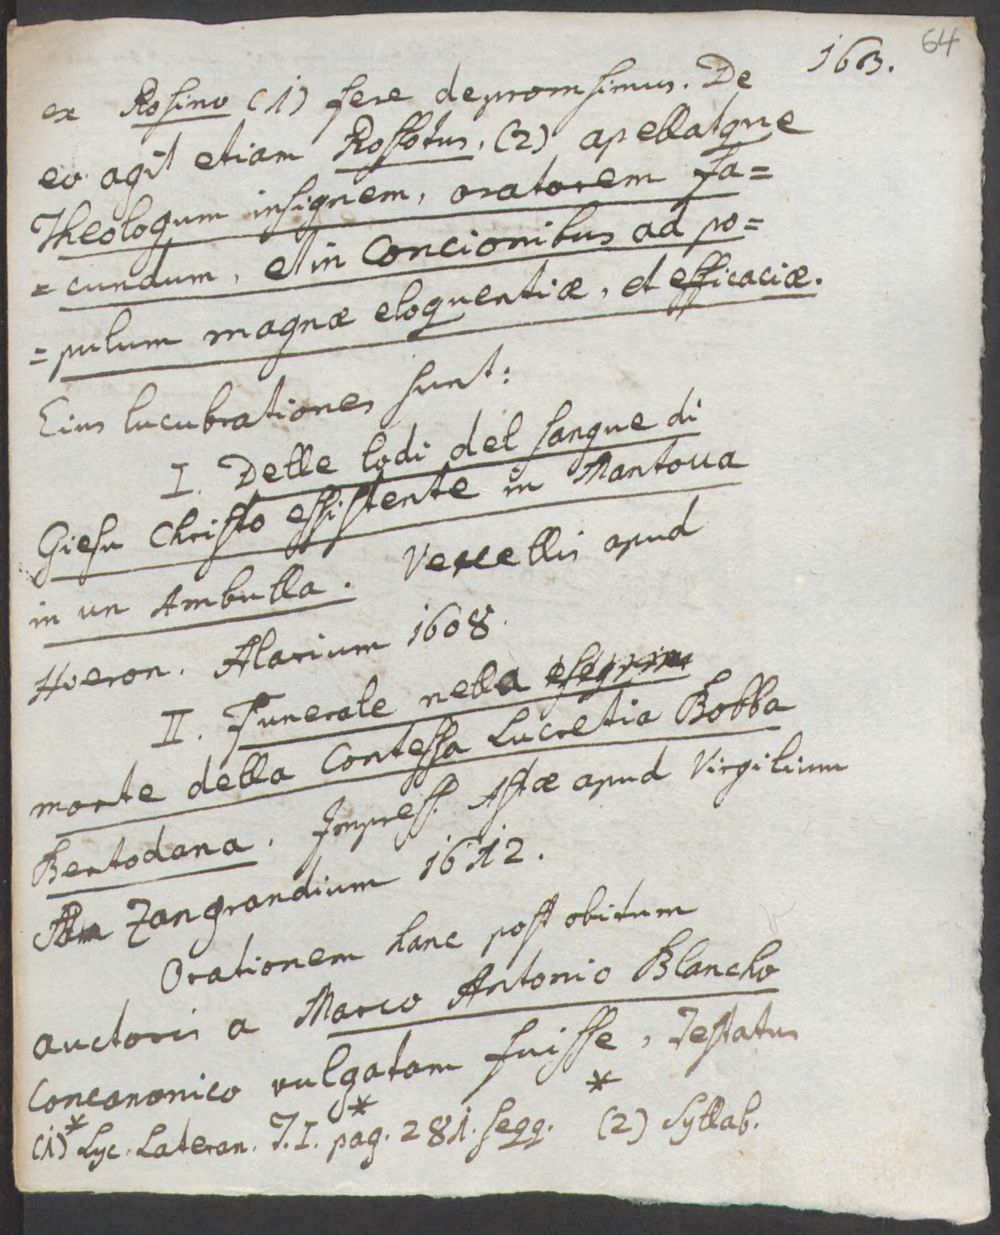 163. 64
ex Rosino (1) fere depromsimus. De
eo agit etiam Rossotus, (2) apellatque
Theologum insignem, oratorem fa=
=cundum, et in Concionibus ad po=
=pulum magnæ eloquentiæ, et efficaciæ.
Eius lucubrationes sunt:
I. Delle lodi del sangue di
Giesu Christo essistente in Mantova
in un Ambulla. Vercellis apud
Hieron. Alarium 1608.
II. Funerale nella
morte della Contessa Lucretia Bobba
Bertodana. Impress. Astæ apud Virgilium
Zangrandium 1612.
Orationem hanc post obitum
auctoris a Marco Antonio Blancho
Concanonico vulgatam fuisse, testatus
(1)* Lyc. Lateran. T.I. pag.* 281. seqq. (2)* Syllab.